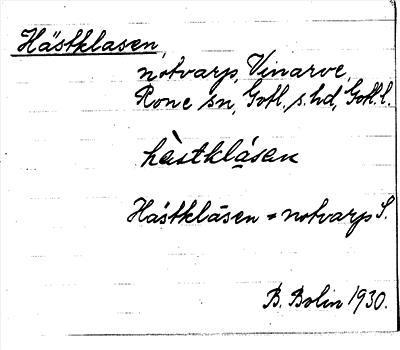 Hästklasen,
notvarp, Vinarve,
Rone sn, Gotl. s. hd, Gotl. l.
hàstklásan
Hästklāsen = notvarp S.
B. Bolin 1930.